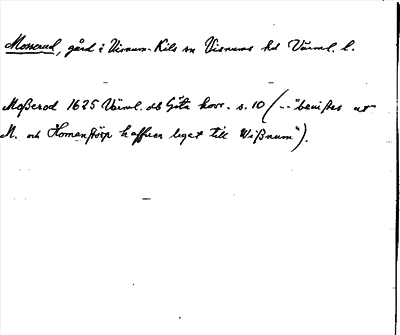 Mosserud, gård i Visnum-Kils sn Visnums hd Värml. l.
Moßerod 1625 Värml. ob Göta hovr. s. 10 (--"beuißes at
M. och Homenstorp haffuer leget till Wißnum").